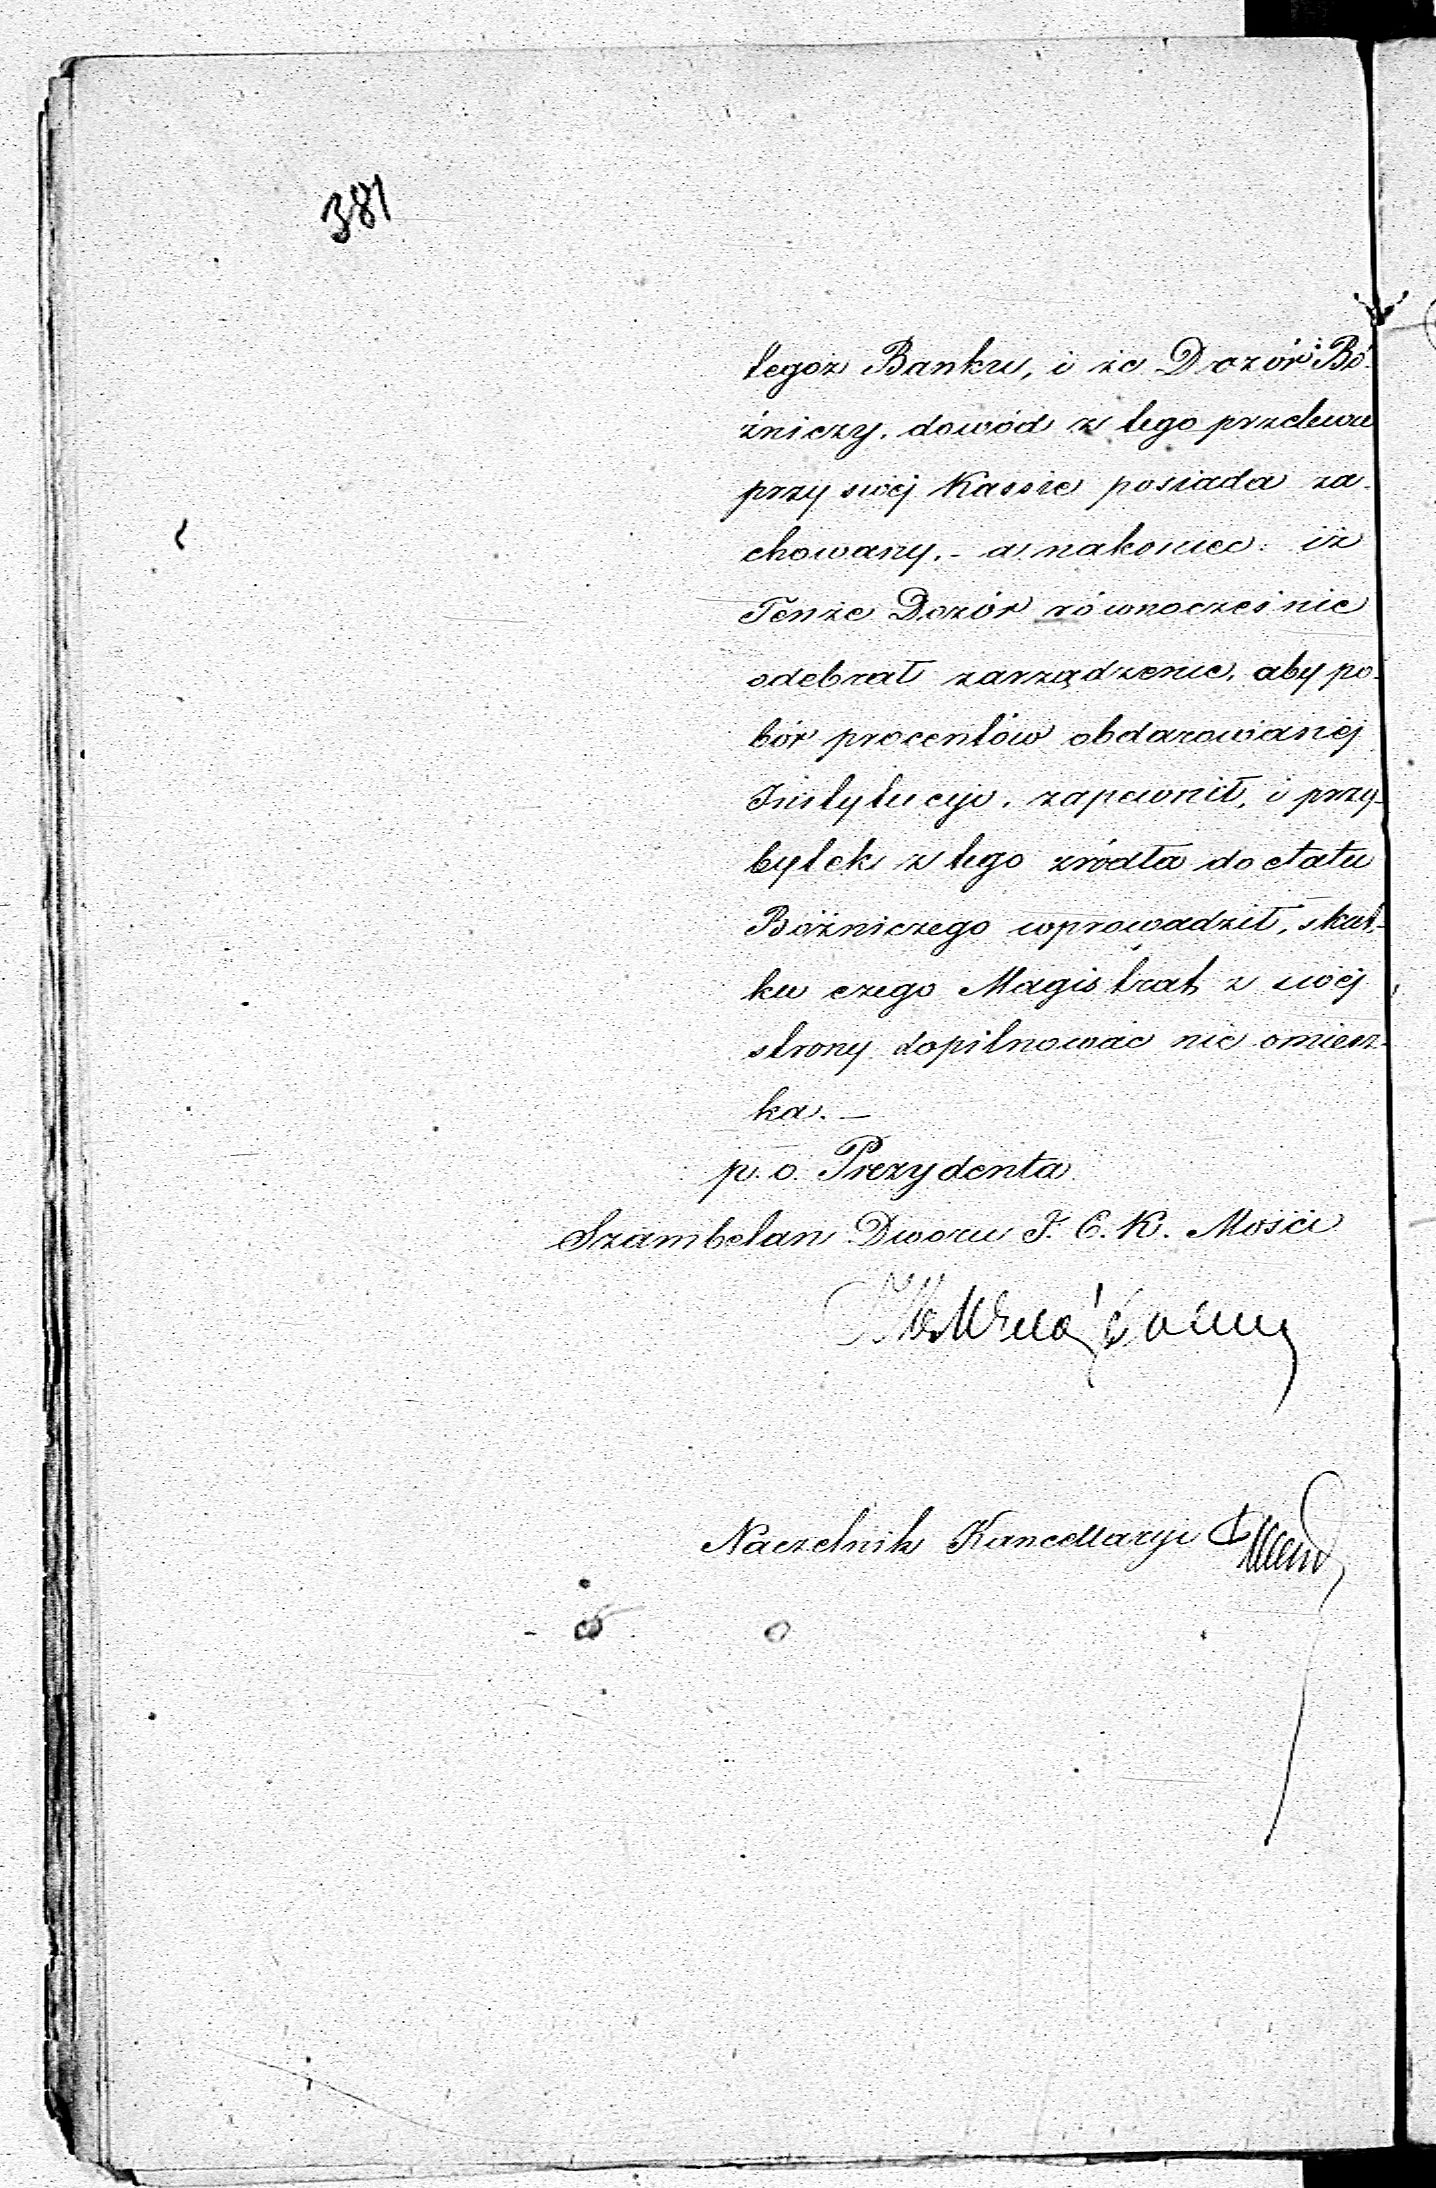 381
tegoż Banku, i że Dozór Bó-
żniczy, dowód z tego przelewu
przy swéj Kassie posiada za-
chowany, - a nakoniec: iż
Tenże Dozór równocześnie
odebrał zarządzenie, aby po-
bór procentów obdarowanéj
Instytucyi, zapewnił, i przy-
bytek z tego źródła do etatu
Bóżniczego wprowadził, skut-
ku czego Magistrat z swéj
strony dopilnować nie omiesz-
ka. —
p. o. Prezydenta
Szambelan Dworu J. C. K. Mości
Naczelnik Kancellaryi